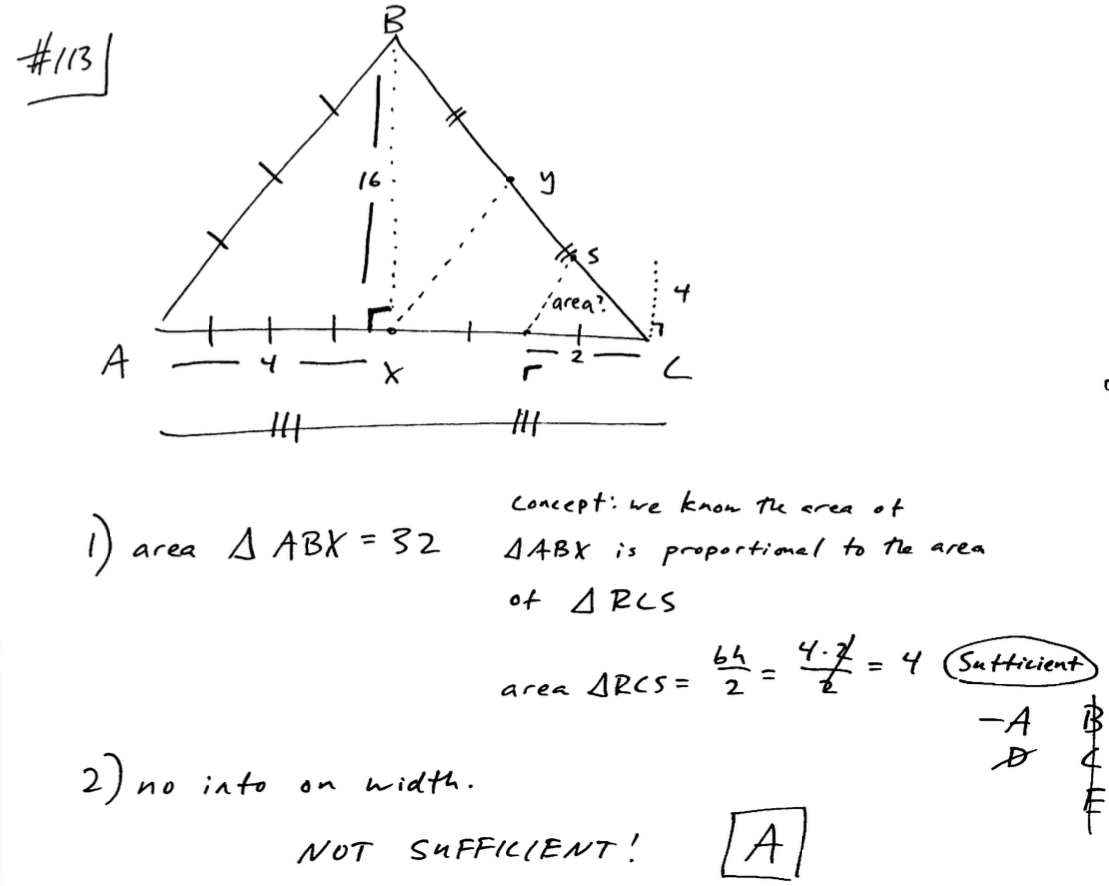 #113
B
16
y
S
area?
4
A
4
X
r
2
C
1) area △ ABX = 32
Concept: we know the area of
△ABX is proportional to the area
of △ RCS
area △RCS = bh/2 = 4·2/2 = 4 Sufficient
-A B
D C
E
2) no info on width.
NOT SUFFICIENT! A